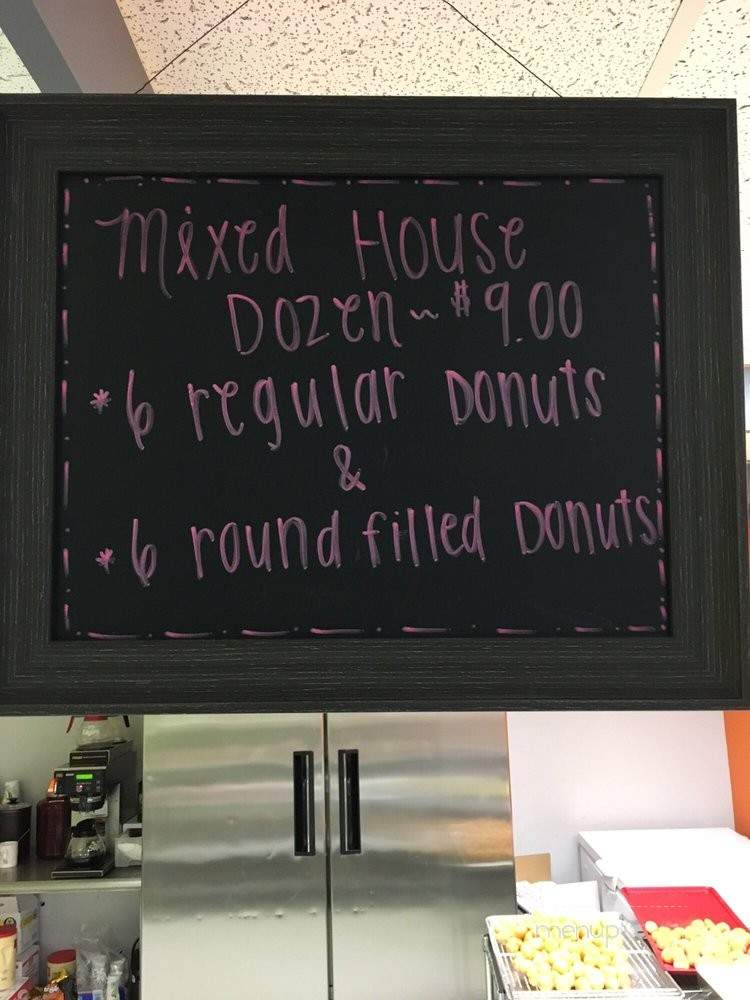 Mixed House
Dozen ~ $9.00
*6 regular Donuts
&
*6 round filled Donuts
menupix